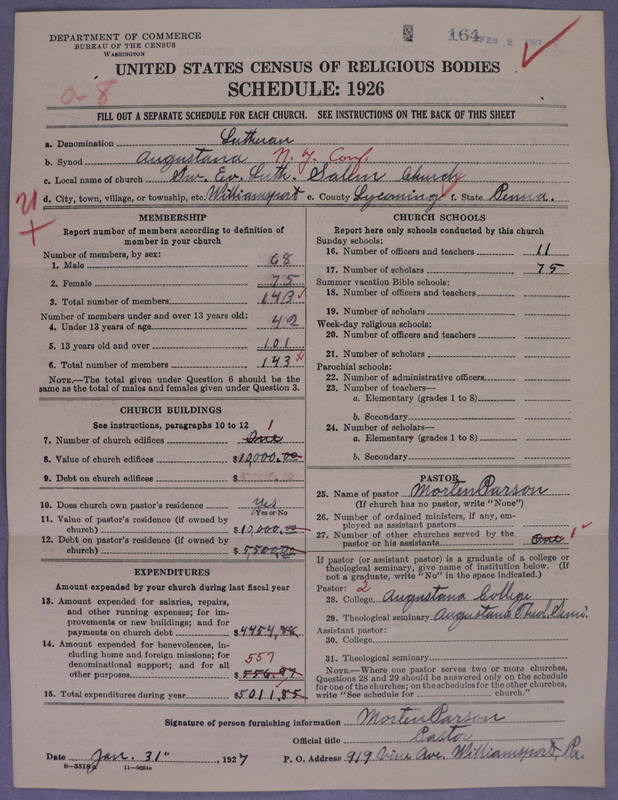 DEPARTMENT OF COMMERCE
BUREAU OF THE CENSUS
WASHINGTON
164 FEB 2 1927
UNITED STATES CENSUS OF RELIGIOUS BODIES
SCHEDULE: 1926
0-8
FILL OUT A SEPARATE SCHEDULE FOR EACH CHURCH. SEE INSTRUCTIONS ON THE BACK OF THIS SHEET
a. Denomination Lutheran
b. Synod Augustana N.Y. Conf.
c. Local name of church Sw. Ev. Luth. Salem Church
d. City, town, village, or township, etc. Williamsport e. County Lycoming f. State Penna.
MEMBERSHIP
Report number of members according to definition of
member in your church
Number of members, by sex:
1. Male 68
2. Female 75
3. Total number of members 143
Number of members under and over 13 years old:
4. Under 13 years of age 42
5. 13 years old and over 101
6. Total number of members 143
NOTE.—The total given under Question 6 should be the
same as the total of males and females given under Question 3.
CHURCH BUILDINGS
See instructions, paragraphs 10 to 12
7. Number of church edifices One 1
8. Value of church edifices $10,000.00
9. Debt on church edifices $
10. Does church own pastor's residence Yes
(Yes or No)
11. Value of pastor's residence (if owned by
church) $10,000.00
12. Debt on pastor's residence (if owned by
church) $5,500.00
EXPENDITURES
Amount expended by your church during last fiscal year
13. Amount expended for salaries, repairs,
and other running expenses; for im-
provements or new buildings; and for
payments on church debt $4454.88
14. Amount expended for benevolences, in-
cluding home and foreign missions; for
denominational support; and for all
other purposes $556.97 557
15. Total expenditures during year $5011.85
CHURCH SCHOOLS
Report here only schools conducted by this church
Sunday schools:
16. Number of officers and teachers 11
17. Number of scholars 75
Summer vacation Bible schools:
18. Number of officers and teachers
19. Number of scholars
Week-day religious schools:
20. Number of officers and teachers
21. Number of scholars
Parochial schools:
22. Number of administrative officers
23. Number of teachers—
a. Elementary (grades 1 to 8)
b. Secondary
24. Number of scholars—
a. Elementary (grades 1 to 8)
b. Secondary
PASTOR
25. Name of pastor Morten Parson
(If church has no pastor, write "None")
26. Number of ordained ministers, if any, em-
ployed as assistant pastors
27. Number of other churches served by the
pastor or his assistants One 1
If pastor (or assistant pastor) is a graduate of a college or
theological seminary, give name of institution below. (If
not a graduate, write "No" in the space indicated.)
Pastor: 2
28. College Augustana College
29. Theological seminary Augustana Theol. Semi.
Assistant pastor:
30. College
31. Theological seminary
NOTE.—Where one pastor serves two or more churches,
Questions 28 and 29 should be answered only on the schedule
for one of the churches; on the schedules for the other churches,
write "See schedule for church."
Signature of person furnishing information Morten Parson
Official title Pastor
Date Jan. 31", 1927 P. O. Address 919 Vine Ave. Williamsport, Pa.